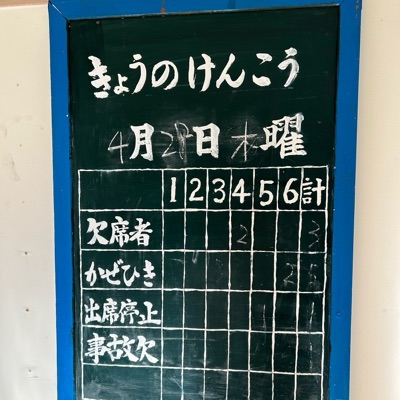 きょうのけんこう
4月 日 木曜
1 2 3 4 5 6 計
欠席者 2 3
かぜひき 2 5
出席停止 1 1
事故欠